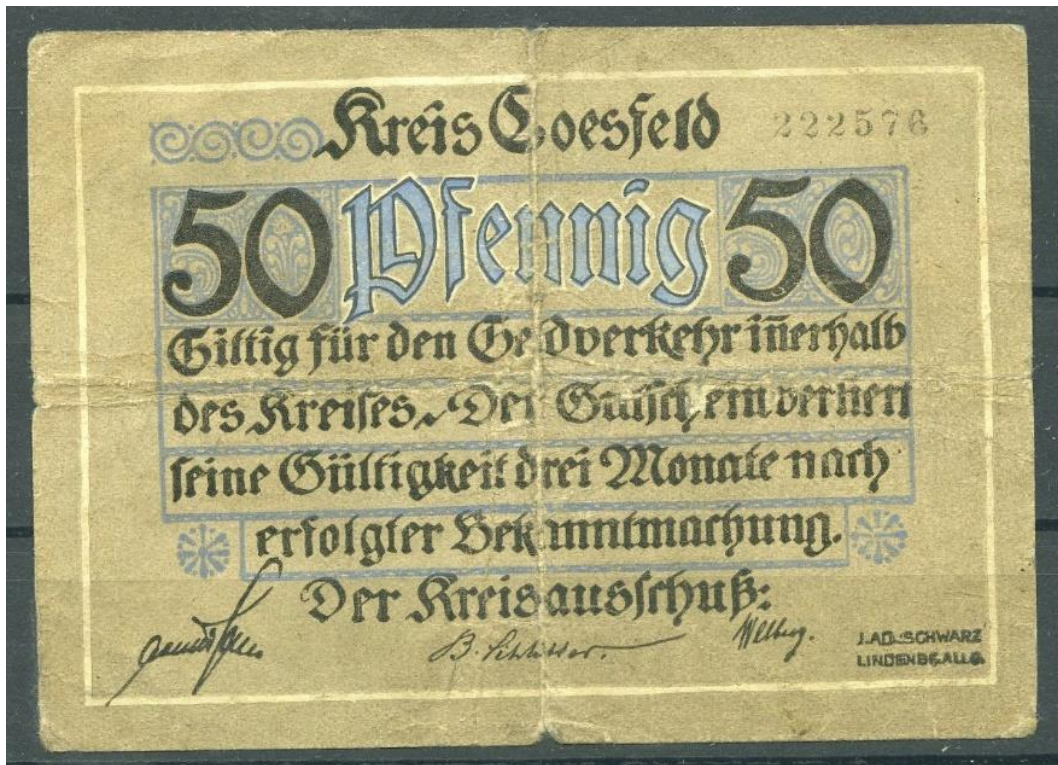 Kreis Coesfeld 222576
50 Pfennig 50
Giltig für den Geldverkehr iñerhalb
des Kreises. Der Gutschein verliert
seine Gültigkeit drei Monate nach
erfolgter Bekanntmachung.
Der Kreisausschuß:
B. Schlitter. Welberg.
J. AD. SCHWARZ
LINDENBG. ALLG.